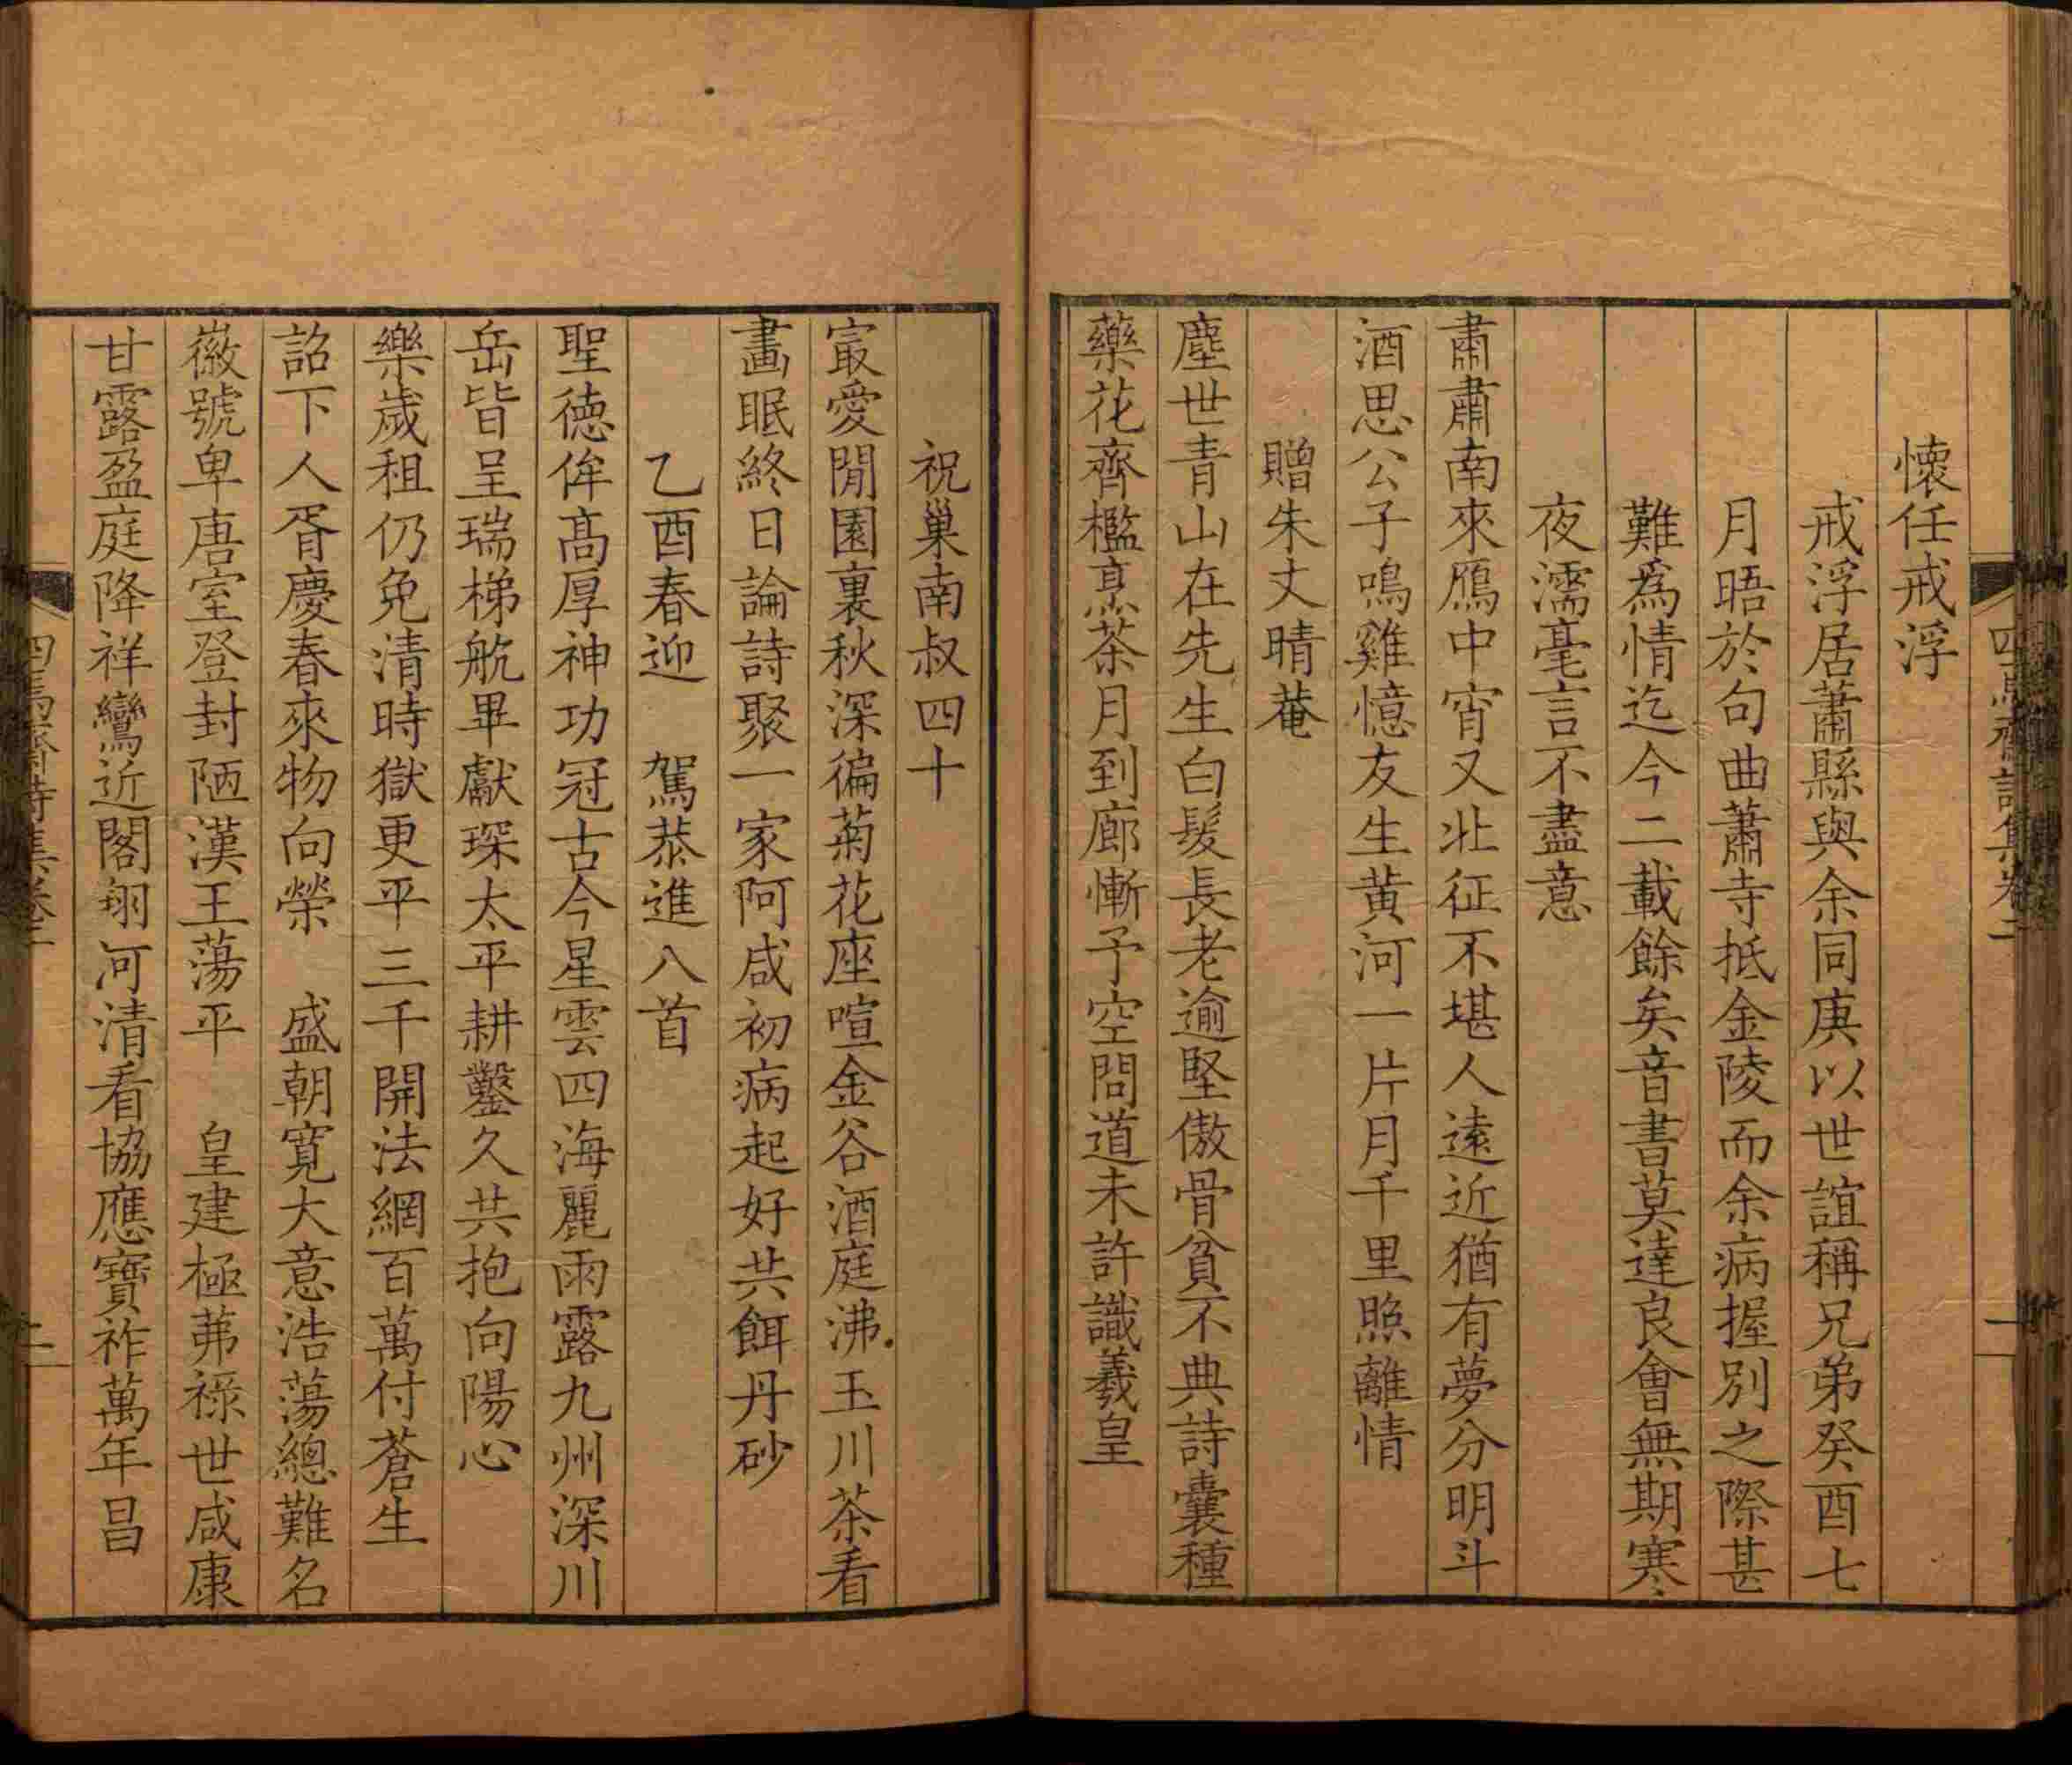 懷任戒浮
戒浮居蕭縣與余同庚以世誼稱兄弟癸酉七
月晤於句曲蕭寺抵金陵而余病握別之際甚
難爲情迄今二載餘矣音書莫達良會無期寒
夜濡毫言不盡意
肅肅南來鴈中宵又北征不堪人遠近猶有夢分明斗
酒思公子鳴雞憶友生黃河一片月千里照離情
贈朱丈晴菴
塵世青山在先生白髮長老逾堅傲骨貧不典詩囊種
藥花齊檻烹茶月到廊慚予空問道未許識羲皇
祝巢南叔四十
冣愛閒園裏秋深徧菊花座喧金谷酒庭沸玉川茶看
畫眠終日論詩聚一家阿咸初病起好共餌丹砂
乙酉春迎　駕恭進八首
聖德侔高厚神功冠古今星雲四海麗雨露九州深川
岳皆呈瑞梯航畢獻琛太平耕鑿久共抱向陽心
樂歲租仍免清時獄更平三千開法網百萬付蒼生
詔下人胥慶春來物向榮　盛朝寬大意浩蕩總難名
徽號卑唐室登封陋漢王蕩平　皇建極茀祿世咸康
甘露盈庭降祥鸞近閣翔河清看協應寶祚萬年昌